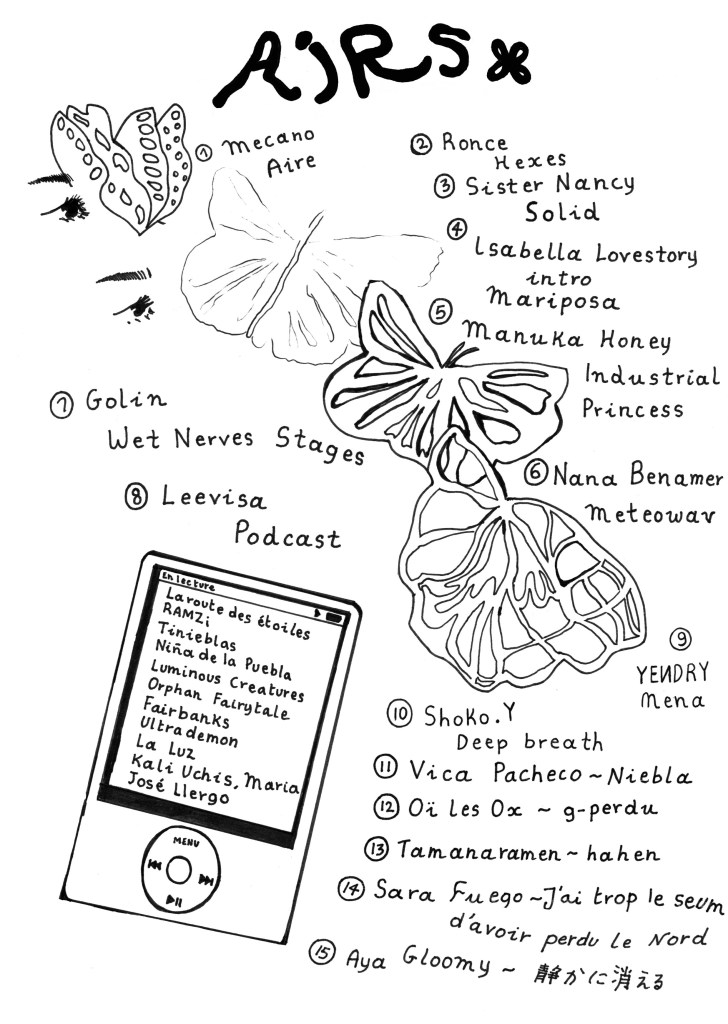 AjRS
① Mecano
Aire
② Ronce
Hexes
③ Sister Nancy
Solid
④ Isabella Lovestory
intro
Mariposa
⑤ Manuka Honey
Industrial
Princess
⑥ Nana Benamer
Meteowav
⑦ Golin
Wet Nerves Stages
⑧ Leevisa
Podcast
En lecture
La route des étoiles
RAMZi
Tinieblas
Niña de la Puebla
Luminous Creatures
Orphan Fairytale
Fairbanks
Ultrademon
La Luz
Kali Uchis, Maria
José Llergo
MENU
⑨ YENDRY
Mena
⑩ Shoko.Y
Deep breath
⑪ Vica Pacheco ~ Niebla
⑫ Oï Les Ox ~ g-perdu
⑬ Tamanaramen ~ hahen
⑭ Sara Fuego ~ J'ai trop le seum
d'avoir perdu le Nord
⑮ Aya Gloomy ~ 静かに消える